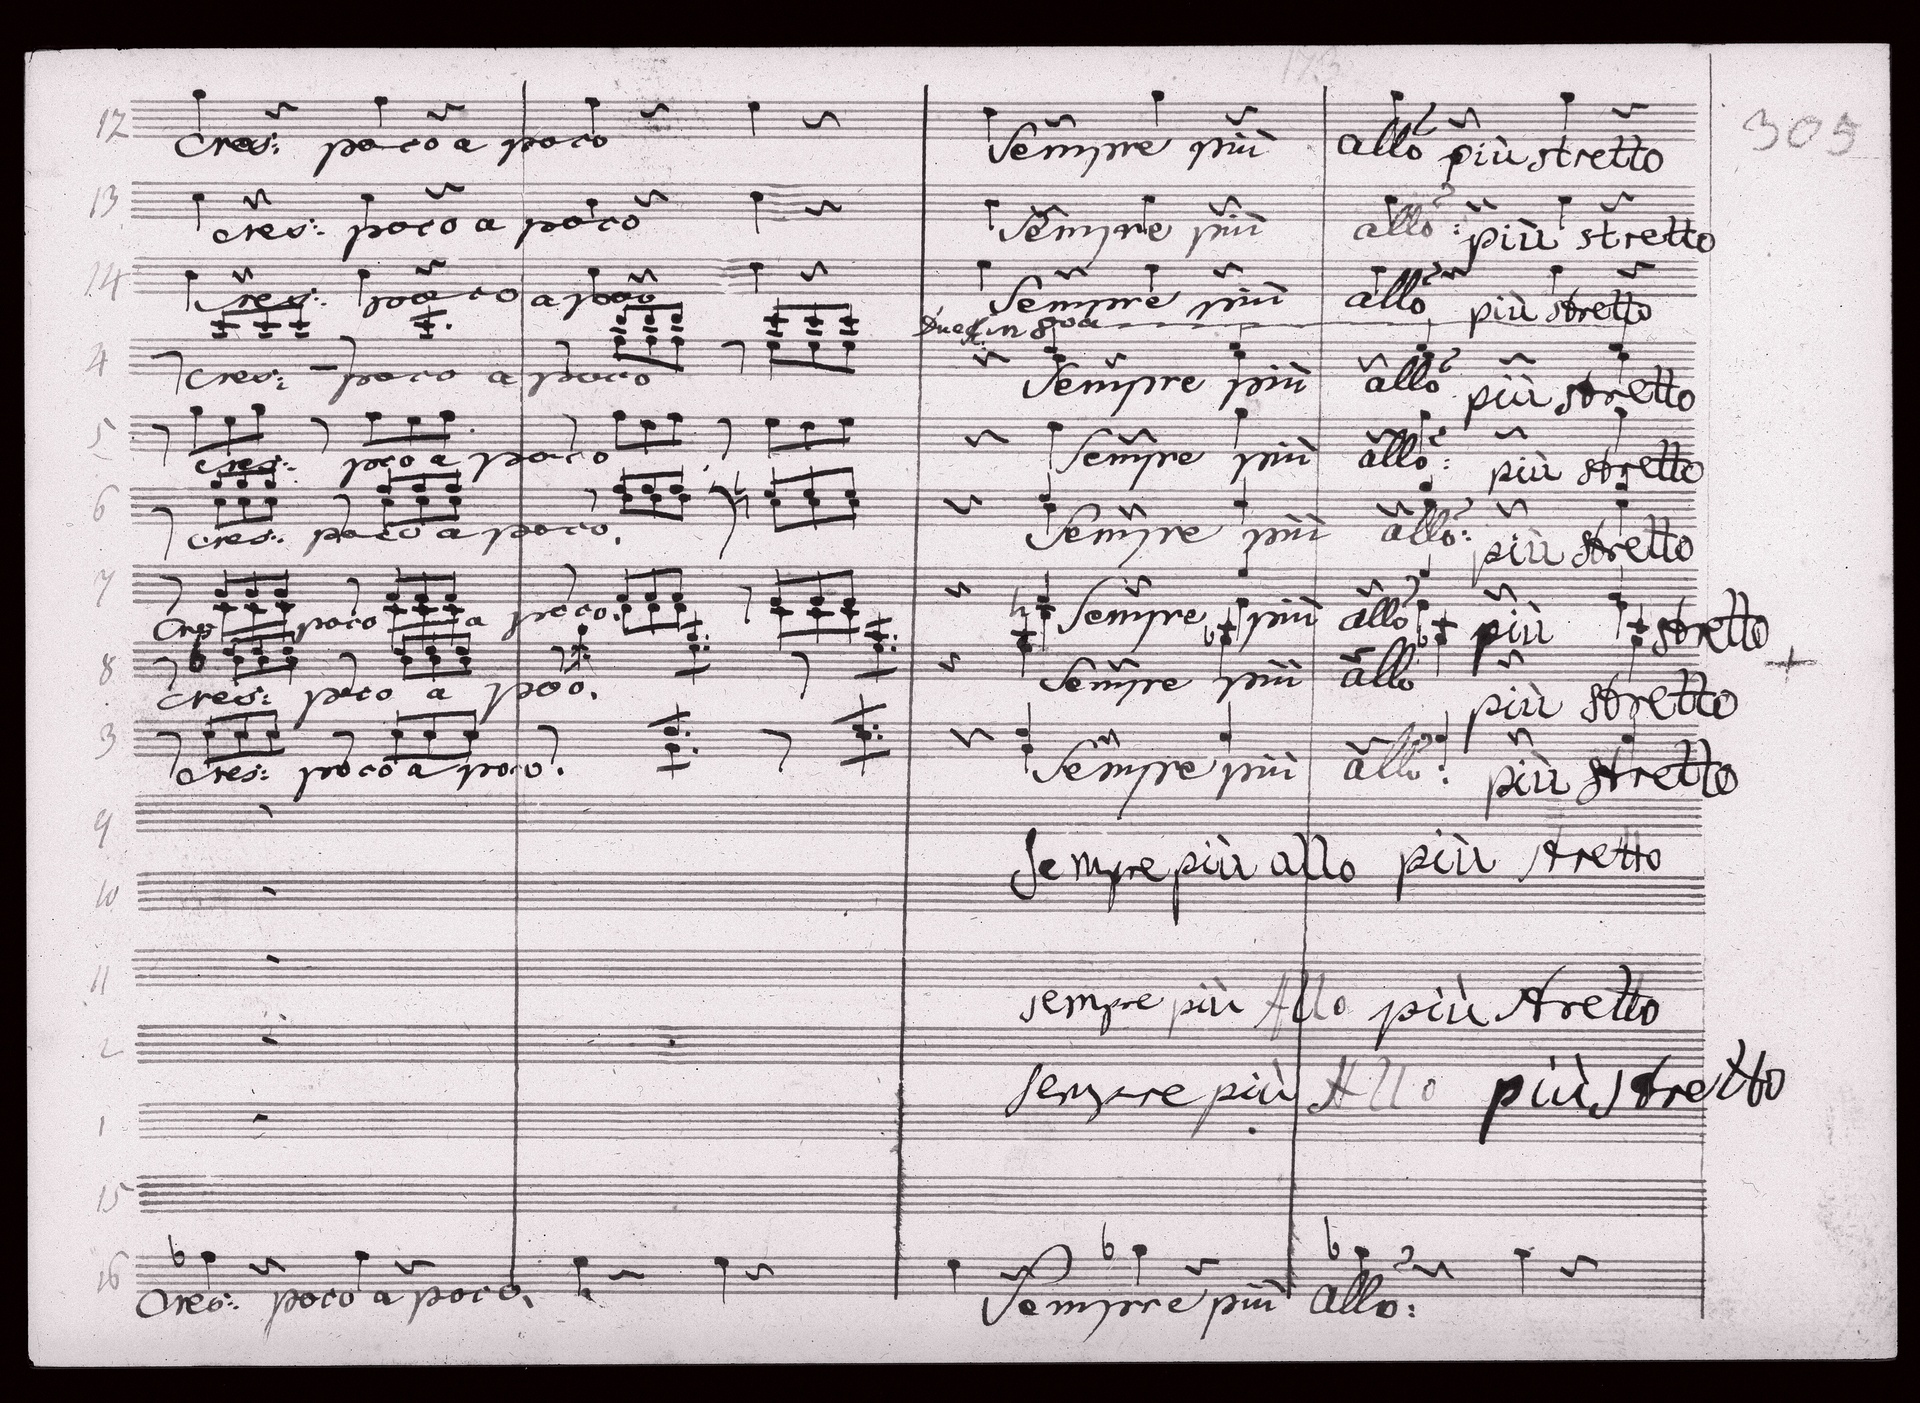 173
305
12 Cres: poco a poco Sempre più allo più stretto
13 cres: poco a poco Sempre più allo: più stretto
14 Cres: poco a poco Sempre più allo più stretto
in 8va
4 cres: poco a poco Sempre più allo più stretto
5 cres: poco a poco Sempre più allo: più stretto
6 cres: poco a poco. Sempre più allo: più stretto
7 Cres poco a poco. Sempre più allo più stretto
8 Cres: poco a poo. Sempre più allo più stretto
3 Cres: poco a poco. Sempre più allo: più stretto
9
Sempre più allo più stretto
10
11
sempre più Allo più stretto
2
sempre più Allo più stretto
1
15
16 Cres: poco a poco. Sempre più allo: